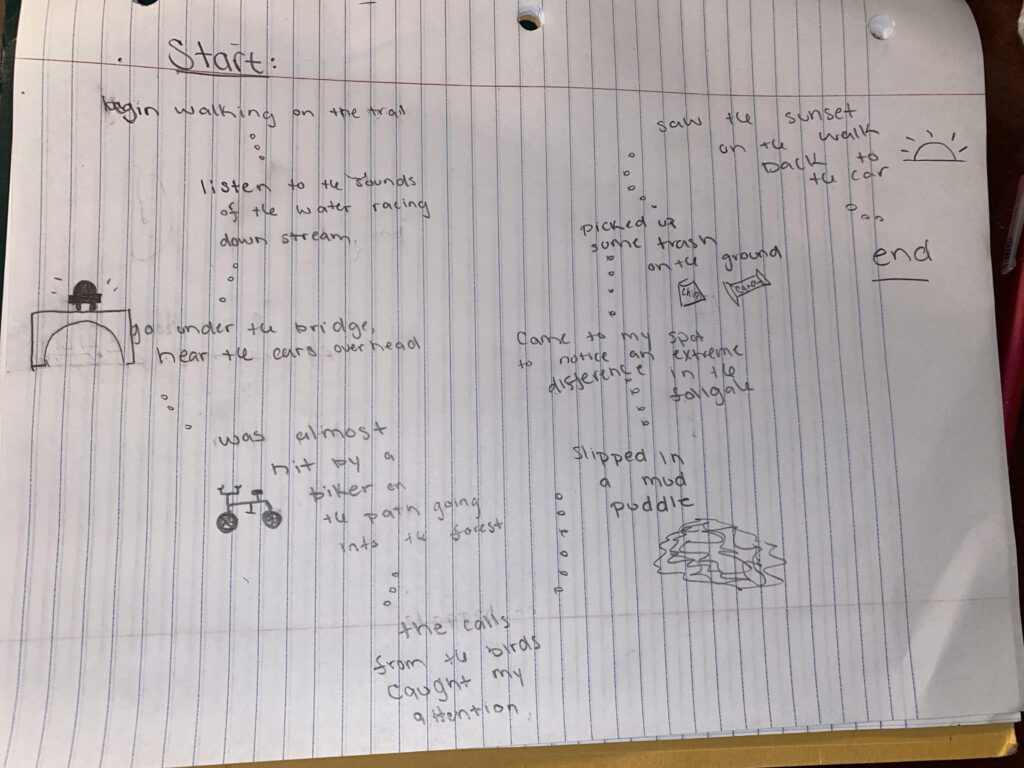 Start:
begin walking on the trail
listen to the sounds
of the water racing
down stream.
go under the bridge,
hear the cars overhead
was almost
hit by a
biker on
the path going
into the forest
the calls
from the birds
caught my
attention
Slipped in
a mud
puddle
Came to my spot
to notice an extreme
difference in the
foilgale
picked up
some trash
on the ground
Chip
Candy
saw the sunset
on the walk
back to
the car
end